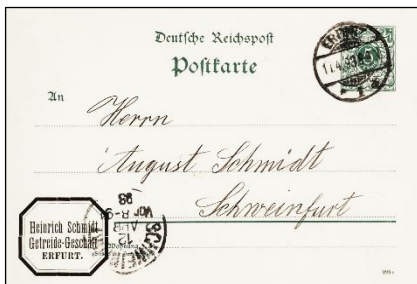 Deutsche Reichspost
Postkarte
ERFURT
17.4.93.8-9
* 1 a
An
Herrn
August Schmidt
Schweinfurt
Heinrich Schmidt
Getreide-Geschäft
ERFURT.
SCHWEINFURT
12
APR
Vor 8-9
93